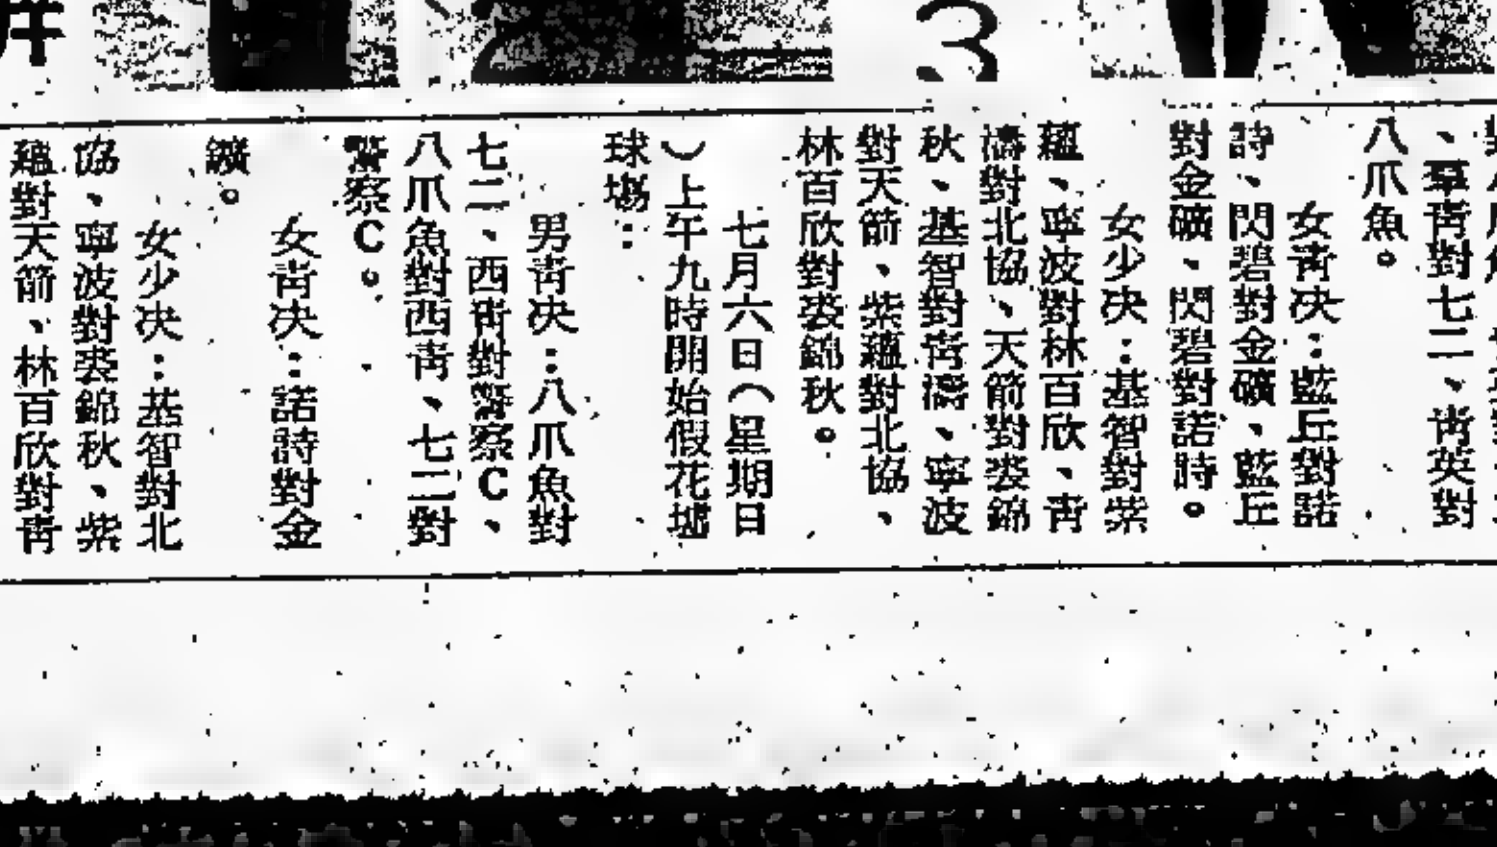 、羣靑對七二、靑英對
八爪魚。
女靑决：藍丘對諾
詩、閃碧對金礦、藍丘
對金礦、閃碧對諾詩。
女少决：基智對紫
蘊、寧波對林百欣、靑
濤對北協、天箭對裘錦
秋、基智對靑濤、寧波
對天箭、紫蘊對北協、
林百欣對裘錦秋。
七月六日（星期日
）上午九時開始假花墟
球塲：
男靑决：八爪魚對
七二、西靑對警察C、
八爪魚對西靑、七二對
警察C。
女靑决：諾詩對金
鑛。
女少决：基智對北
協、寧波對裘錦秋、紫
蘊對天箭、林百欣對靑